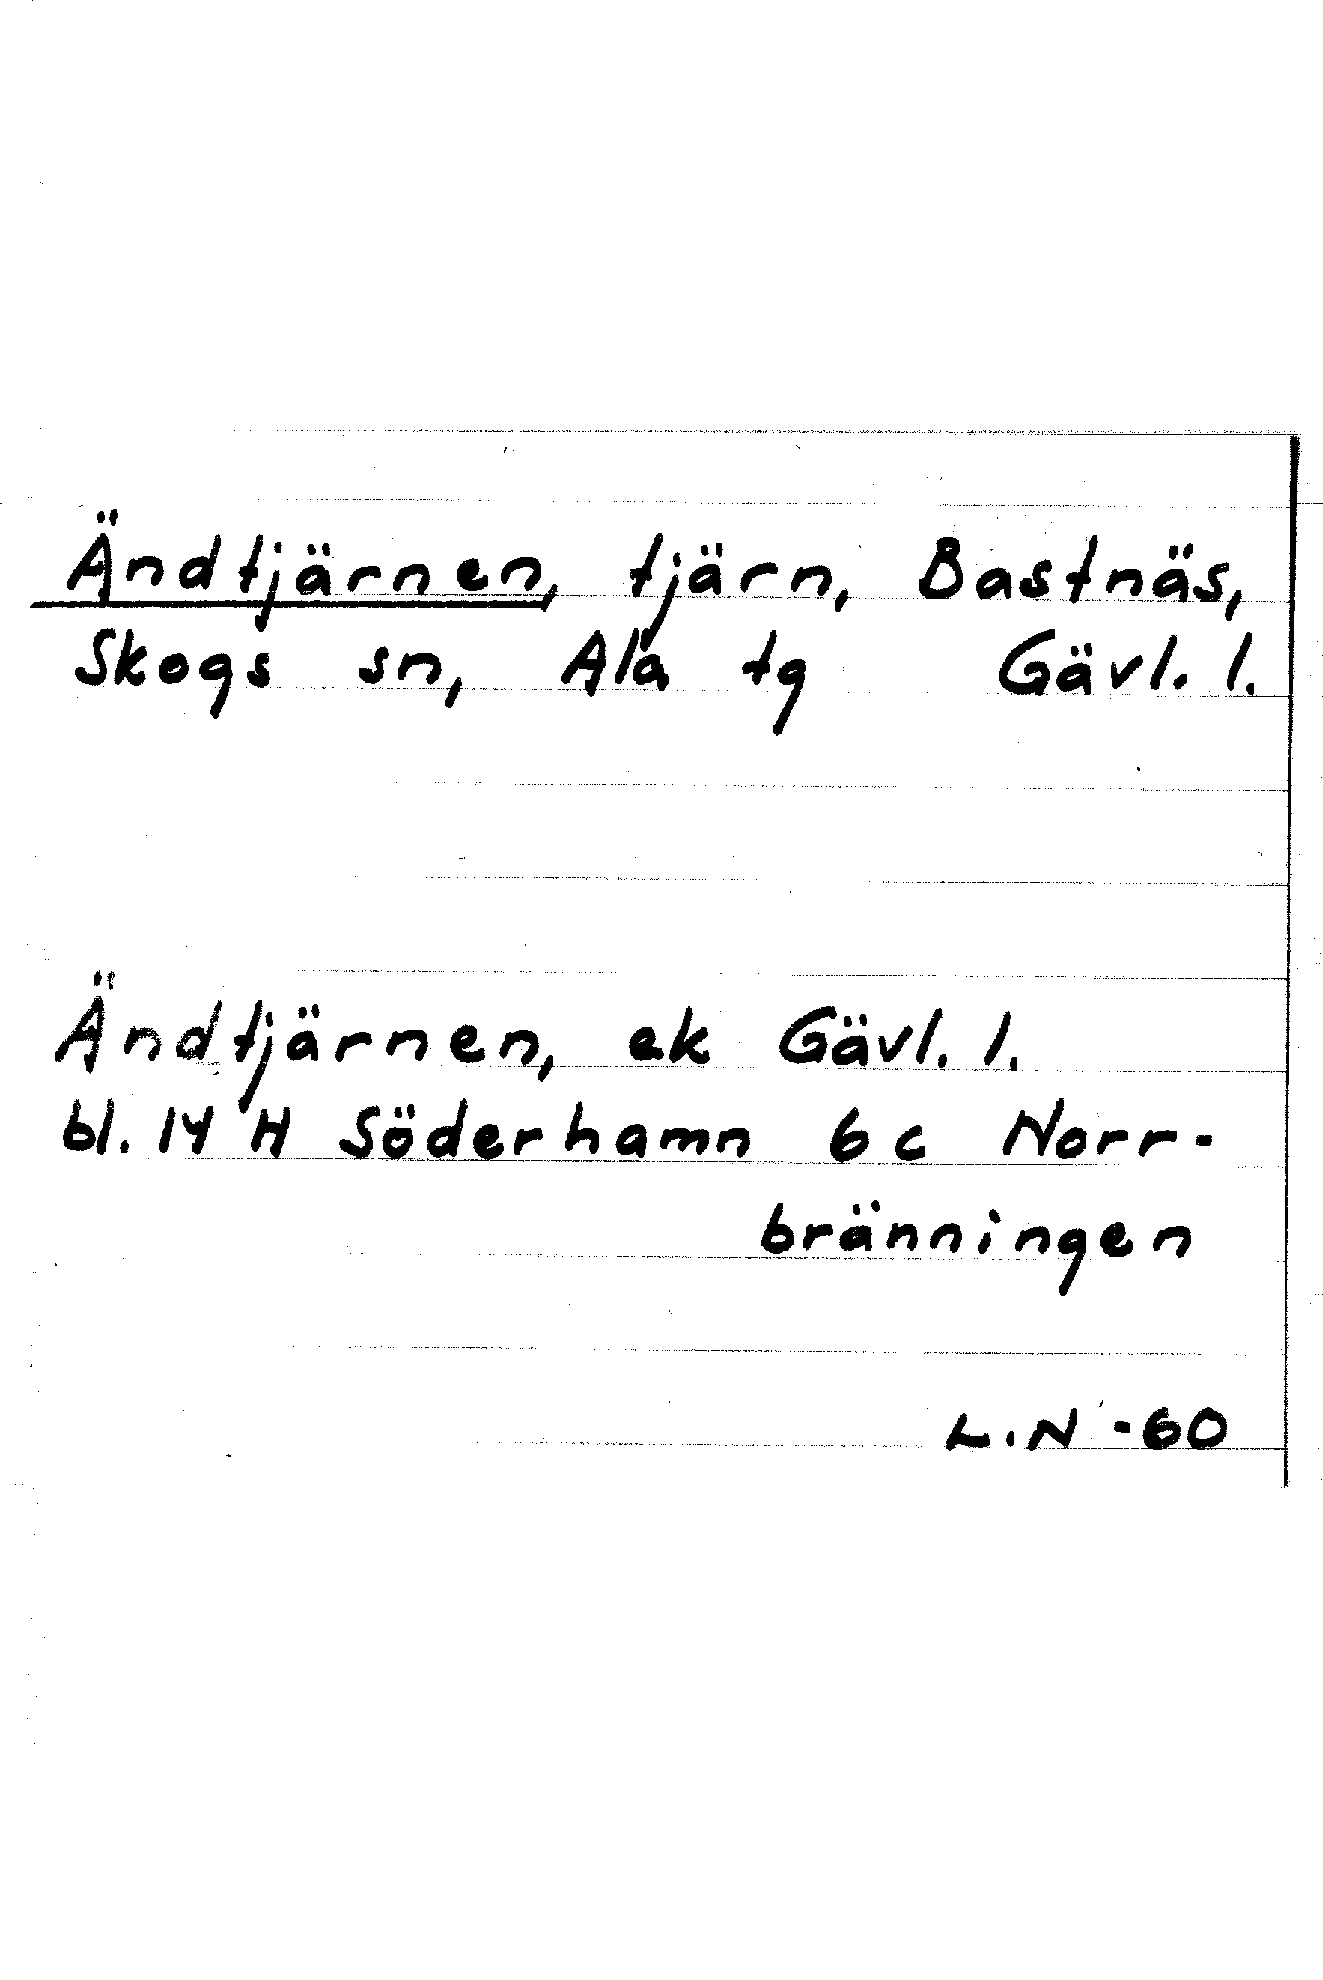 Ändtjärnen, tjärn, Bastnäs,
Skogs sn, Ala tg Gävl. l.
Ändtjärnen, ek Gävl. l.
bl. 14 H Söderhamn 6 c Norr-
bränningen
L.N -60